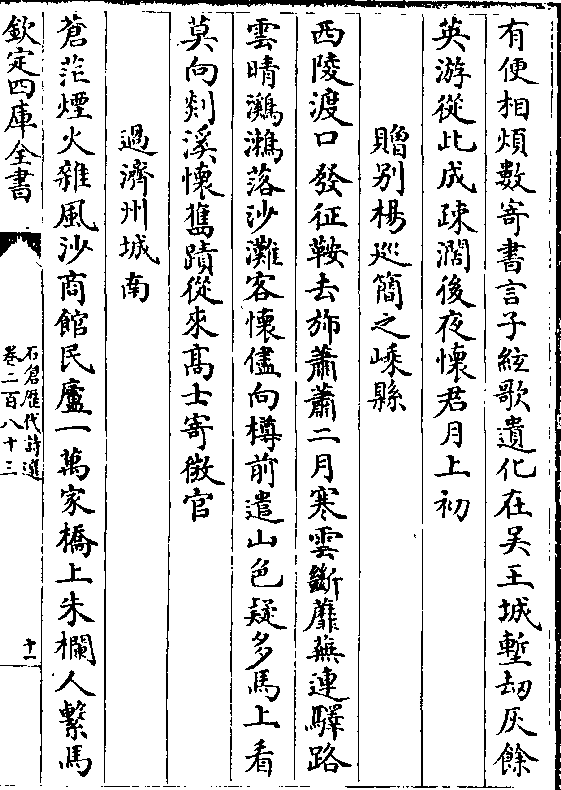 有便相煩數寄書言子絃歌遺化在吴王城塹劫灰餘
英游從此成疎濶後夜懷君月上初
贈别楊巡簡之嵊縣
西陵渡口發征鞍去斾蕭蕭二月寒雲斷蘼蕪連驛路
雲晴鸂鶒落沙灘客懷儘向樽前遣山色疑多馬上看
莫向剡溪懷舊蹟從來髙士寄微官
過濟州城南
蒼茫煙火雜風沙商館民廬一萬家橋上朱欄人繫馬
欽定四庫全書
石倉歷代詩選
卷二百八十三
十一